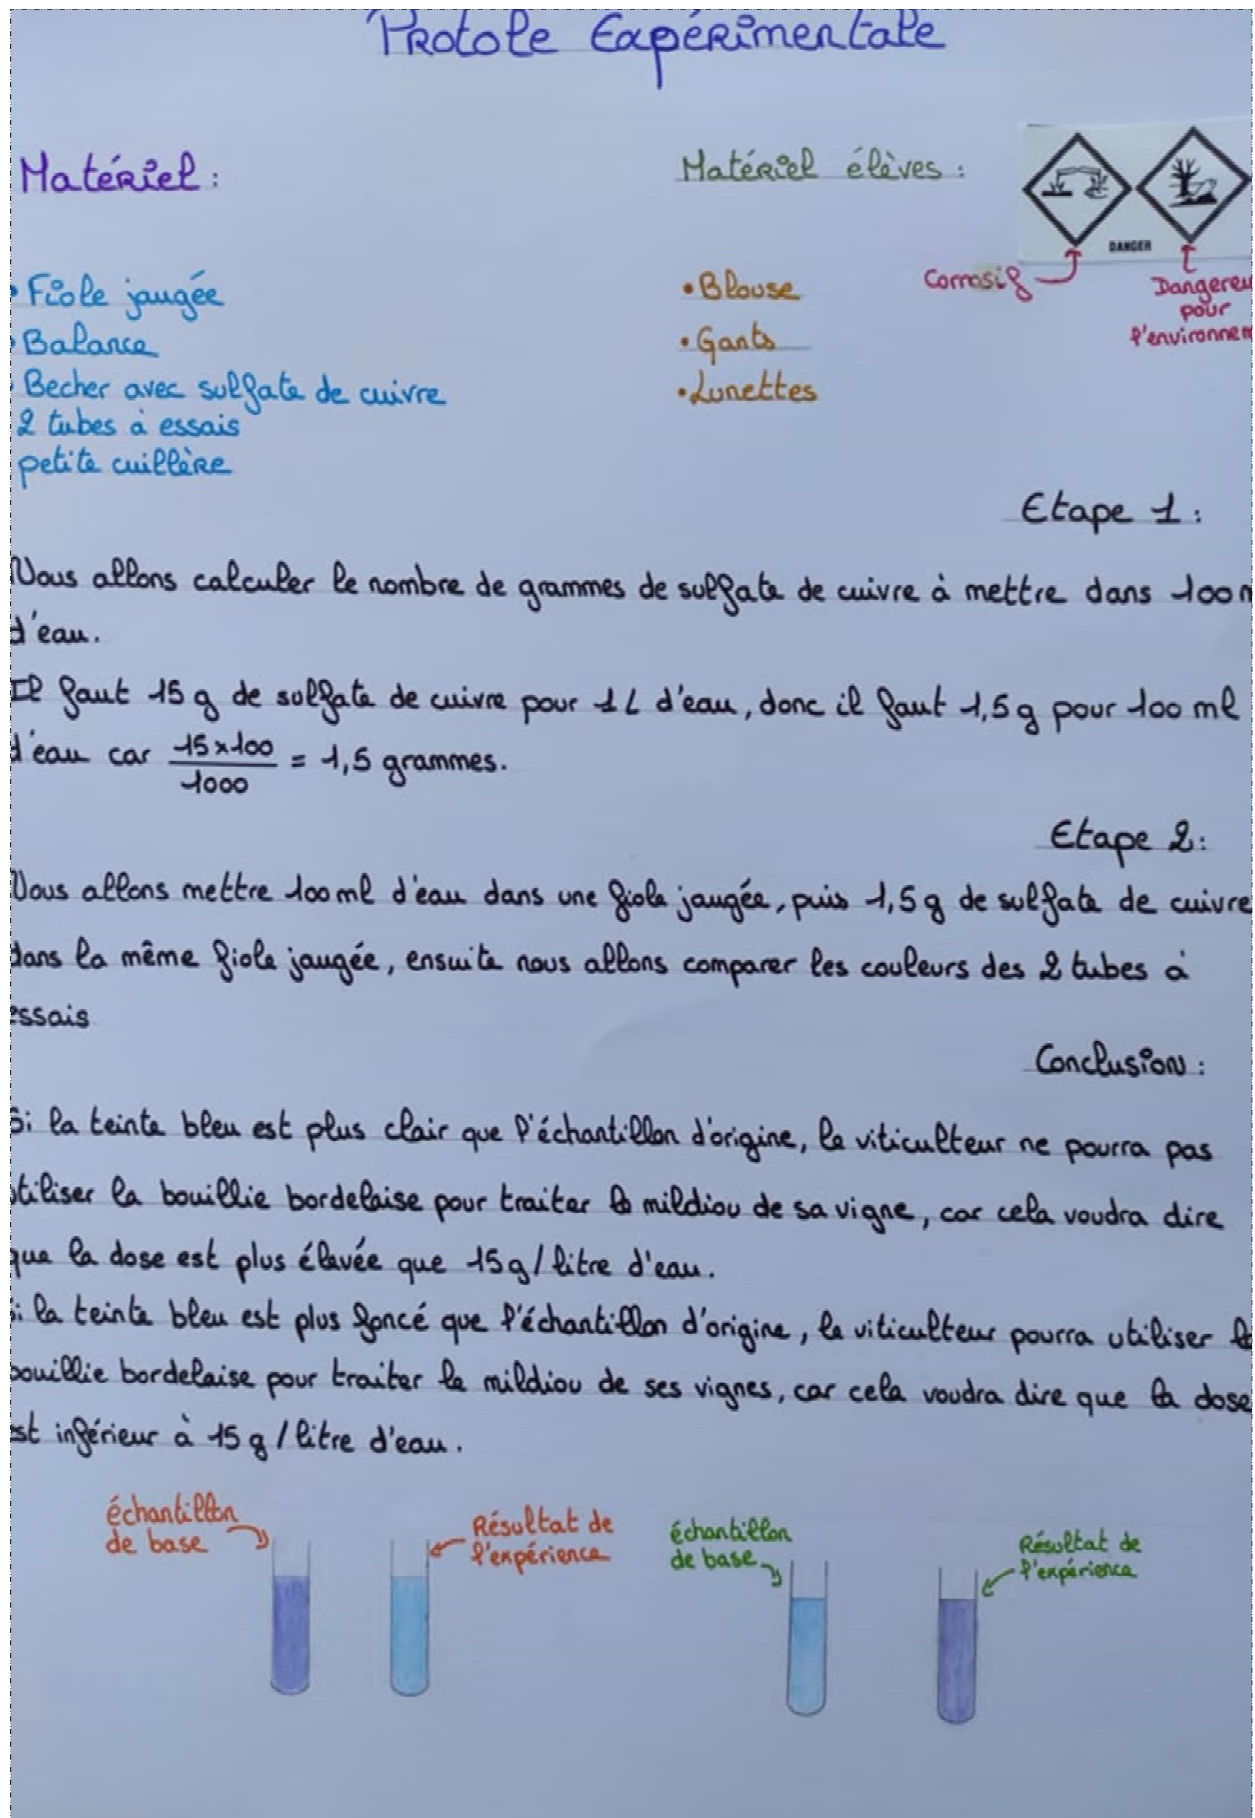 Protole Expérimentale
Matériel :
Matériel élèves :
DANGER
Corrosif
Dangereu
pour
l'environnem
• Fiole jaugée
• Balance
• Becher avec sulfate de cuivre
2 tubes à essais
petite cuillère
• Blouse
• Gants
• Lunettes
Etape 1 :
Nous allons calculer le nombre de grammes de sulfate de cuivre à mettre dans 100 m
d'eau.
Il faut 15 g de sulfate de cuivre pour 1 L d'eau, donc il faut 1,5 g pour 100 ml
d'eau car 15x100 / 1000 = 1,5 grammes.
Etape 2 :
Nous allons mettre 100 ml d'eau dans une fiole jaugée, puis 1,5 g de sulfate de cuivre
dans la même fiole jaugée, ensuite nous allons comparer les couleurs des 2 tubes à
essais
Conclusion :
Si la teinte bleu est plus clair que l'échantillon d'origine, le viticulteur ne pourra pas
utiliser la bouillie bordelaise pour traiter le mildiou de sa vigne, car cela voudra dire
que la dose est plus élevée que 15 g / litre d'eau.
Si la teinte bleu est plus foncé que l'échantillon d'origine, le viticulteur pourra utiliser la
bouillie bordelaise pour traiter le mildiou de ses vignes, car cela voudra dire que la dose
est inférieur à 15 g / litre d'eau.
échantillon
de base
Résultat de
l'expérience
échantillon
de base
Résultat de
l'expérience